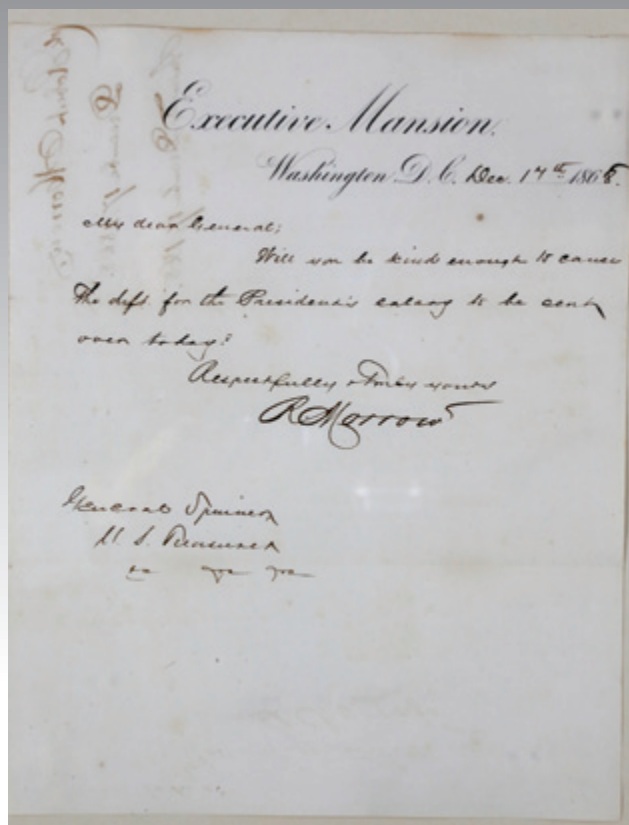 Executive Mansion,
Washington D.C. Dec. 17th 1868.
My dear General:
Will you be kind enough to cause
the dft. for the President's salary to be sent
over today?
Respectfully & Truly yours
R Morrow
General Spinner
U. S. Treasurer